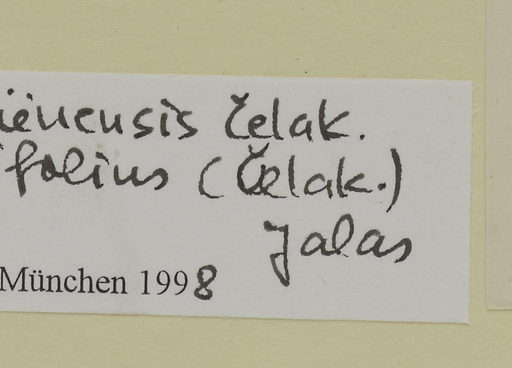 iënensis Čelak.
ifolius (Čelak.)
Jalas
München 1998